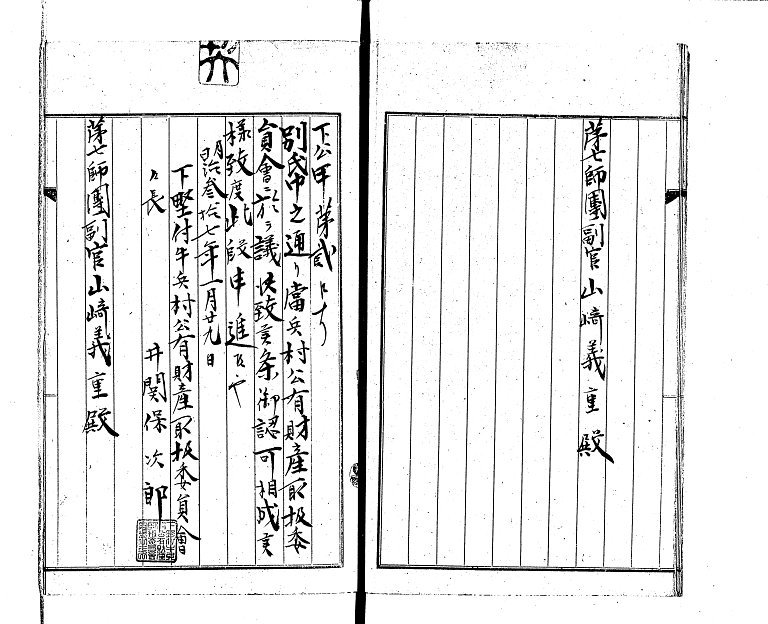 第七師團副官山崎義重殿
下公甲第貳号
別帋之通リ當兵村公有財産取扱委
員會ニ於テ議决致候条御認可相成候
様致度此段申進候也
明治参拾七年一月廿九日
下野付牛兵村公有財産取扱委員會
〃長 井関保次郎
第七師團副官山崎義重殿